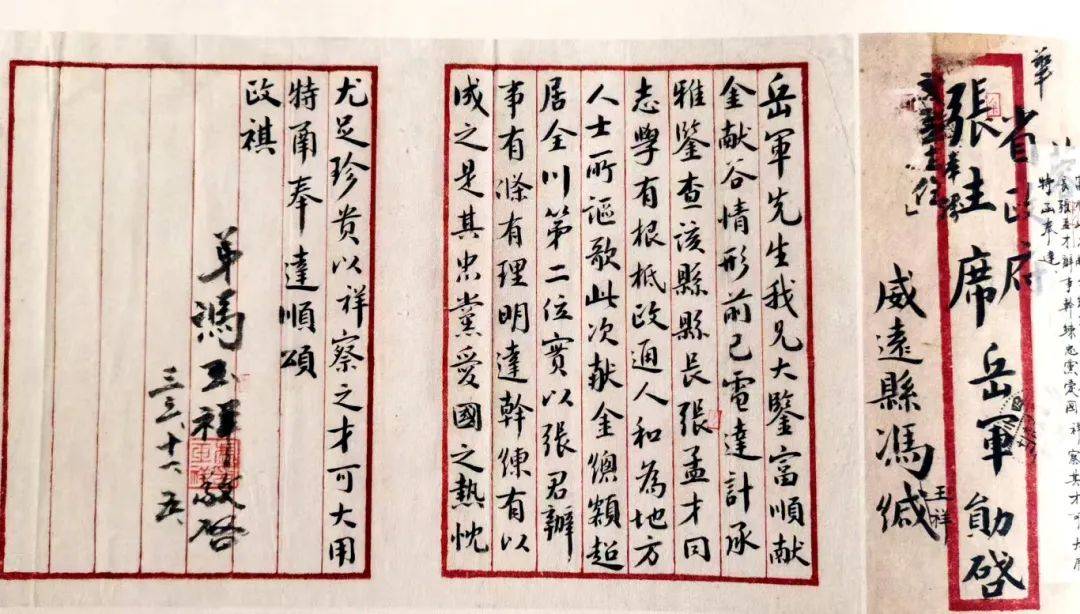 華
特函奉達
省政府
張主席岳軍勛啓
威遠縣馮緘
玉祥
岳軍先生我兄大鑒富順獻
金献谷情形前已電達計承
雅鑒查该縣縣長張孟才同
志學有根柢政通人和為地方
人士所謳歌此次献金總額超
居全川第二位實以張君辦
事有條有理明達幹練有以
成之是其忠黨愛國之熱忱
尤足珍贵以祥察之才可大用
特甬奉達順頌
政祺
弟馮玉祥敬啓
三三、十一、五